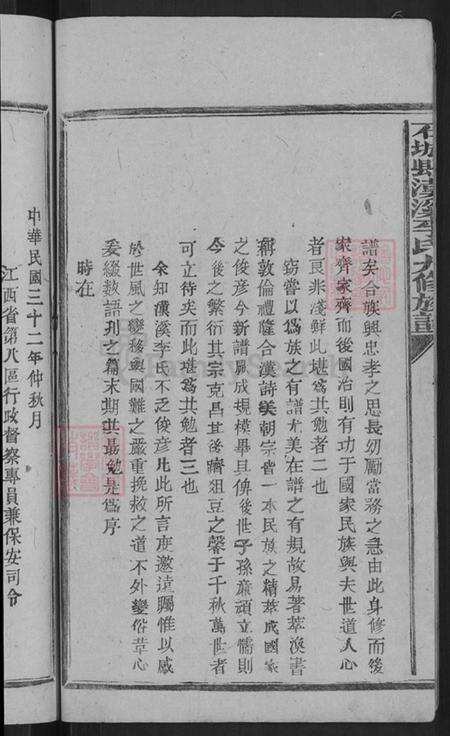 石城縣漢溪李氏九修族譜
譜矣合族興忠孝之思長幼勵當務之急由此身修而後
家齊家齊而後國治則有功于國家民族與夫世道人心
者良非淺鮮此堪爲共勉者二也
竊嘗以爲族之有譜尤美在譜之有規故易著萃渙書
稱敦倫禮隆合漢詩美朝宗皆一本民族之精萃成國家
之俊彥今新譜風成規模畢且俾後世子孫廉頑立懦則
今後之繁衍其宗克昌其後躋俎豆之馨于千秋萬世者
可立待矣而此堪爲共勉者三也
余知漢溪李氏不乏俊彥凡此所言庶邀遠矚惟以感
於世風之變移與國難之嚴重挽救之道不外變俗革心
爰綴數語刋之篇末期共最勉是爲序
時在
中華民國三十二年仲秋月
江西省第八區行政督察專員兼保安司令